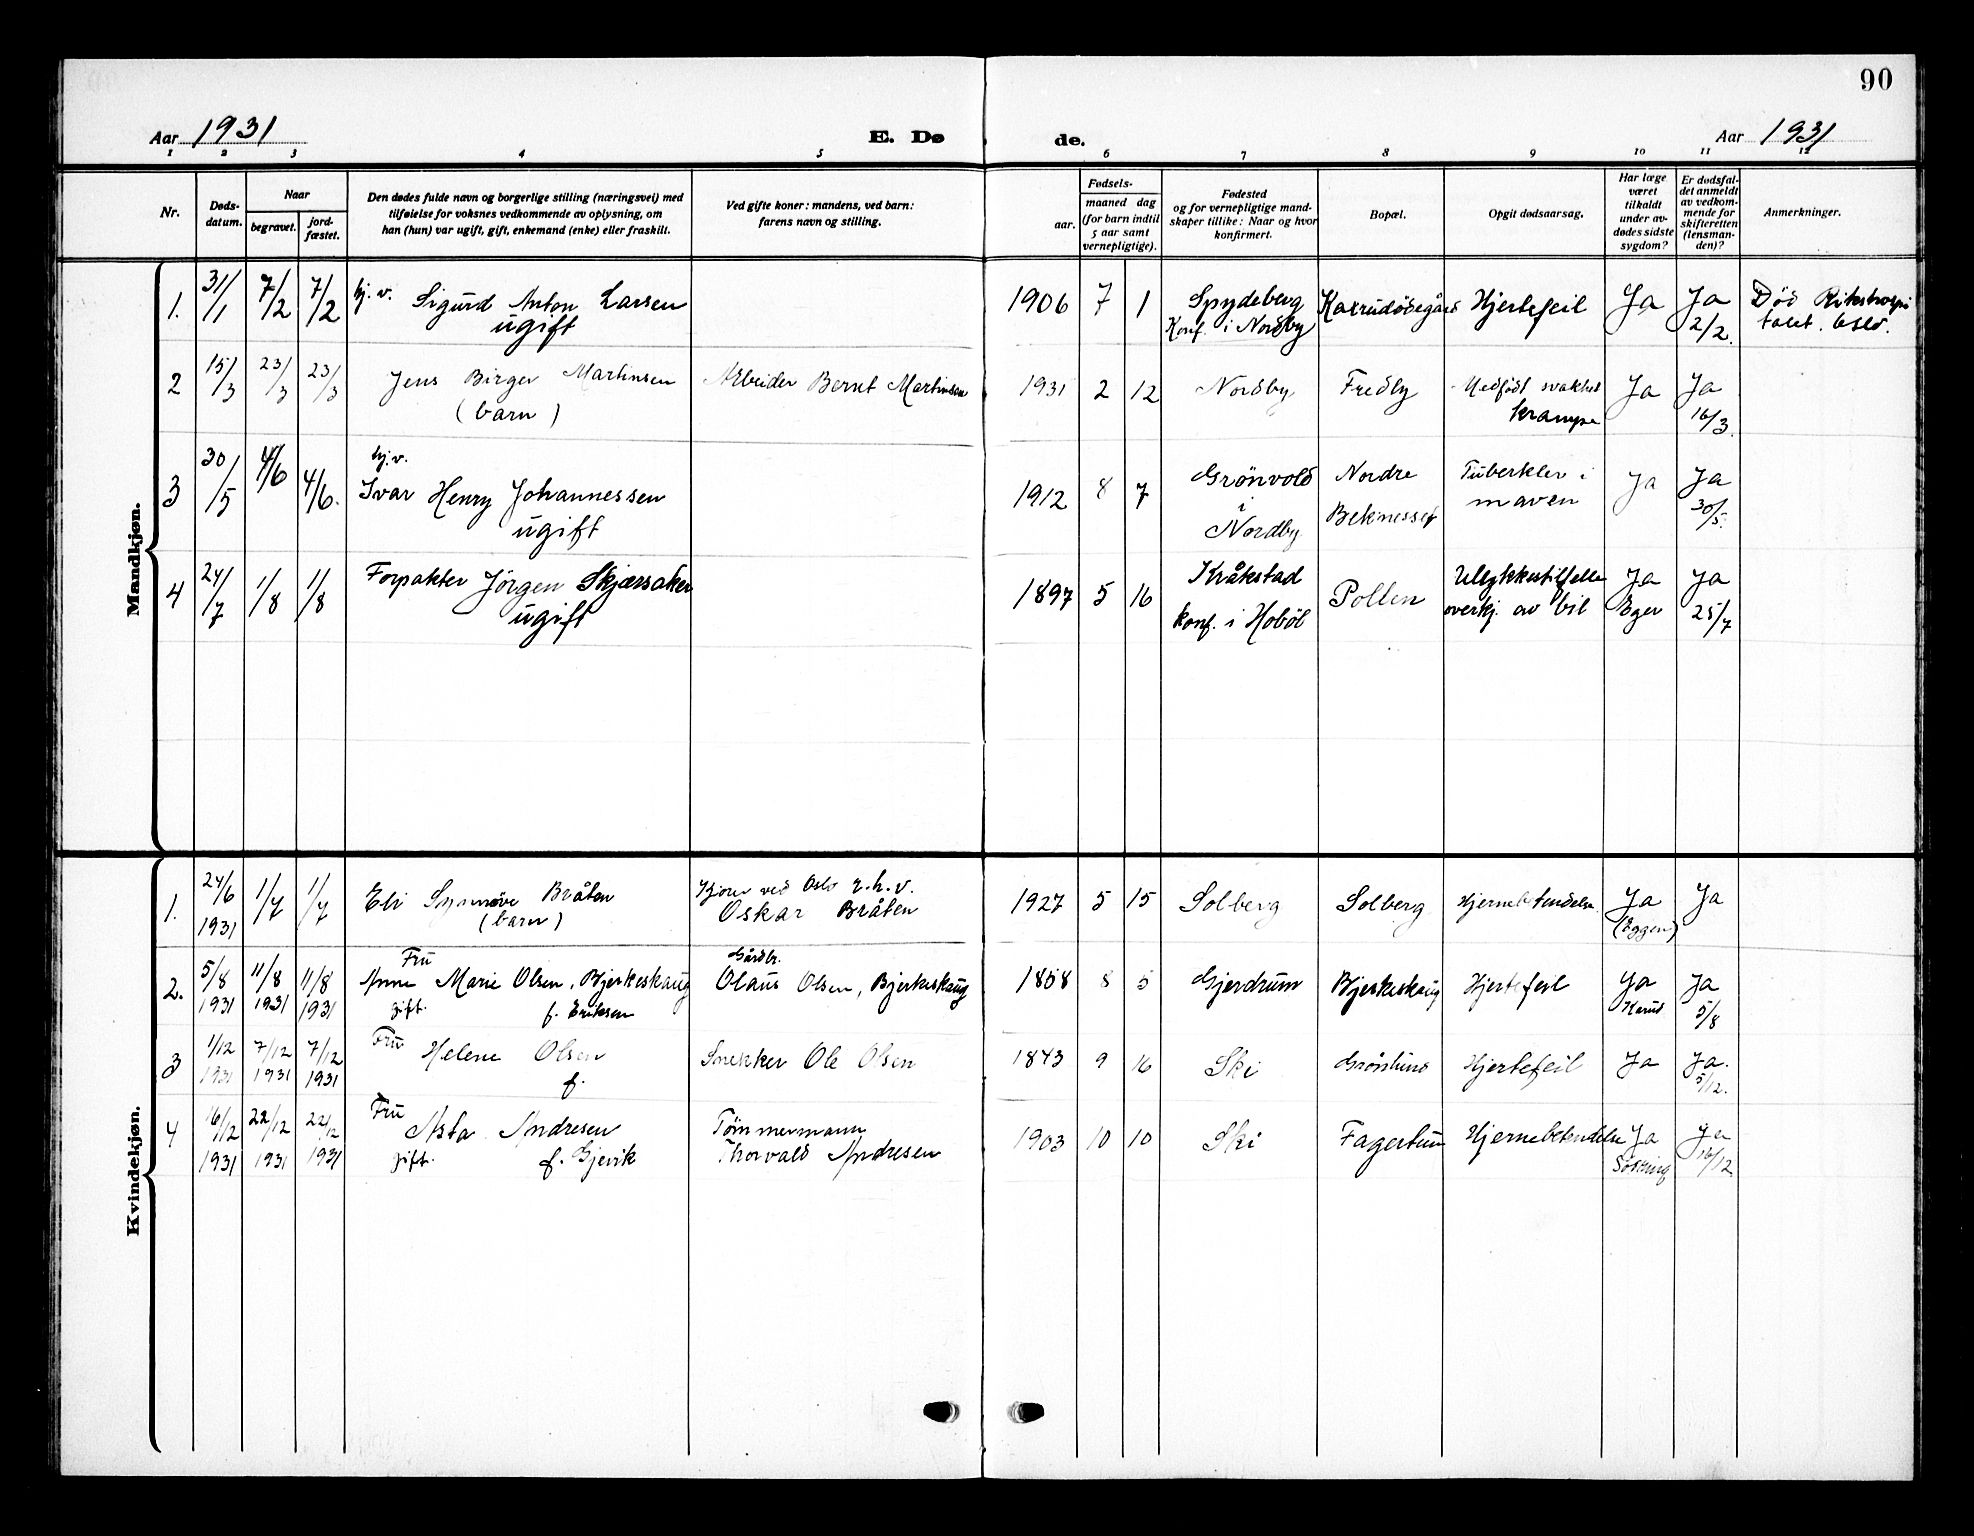 90
Aar 1931
E. Dø
de.
Aar 1931
1 2 3 4 5 6 7 8 9 10 11 12
Nr.
Døds-
datum.
Naar
begravet.
jord-
fæstet.
Den dødes fulde navn og borgerlige stilling (næringsvei) med
tilføielse for voksnes vedkommende av oplysning, om
han (hun) var ugift, gift, enkemand (enke) eller fraskilt.
Ved gifte koner: mandens, ved barn:
farens navn og stilling.
Fødsels-
aar.
maaned dag
(for barn indtil
5 aar samt
vernepligtige).
Fødested
og for vernepligtige mand-
skaper tillike: Naar og hvor
konfirmert.
Bopæl.
Opgit dødsaarsag.
Har læge
været
tilkaldt
under av-
dødes sidste
sygdom?
Er dødsfal-
det anmeldt
av vedkom-
mende for
skifteretten
(lensman-
den)?
Anmerkninger.
Mandkjøn.
1. 31/1 7/2 7/2 hj.v. Sigurd Anton Larsen
ugift
1906 7 1 Spydeberg
Konf. i Nordby
Hjertefeil Ja Ja
2/2.
Død Rikshospi
talet. Oslo.
2 15/3 23/3 23/3 Jens Birger Martinsen
(barn)
Arbeider Bernt Martinsen
1931 2 12 Nordby Fredly Medfödt svakhet
krampe
Ja Ja
16/3.
3 30/5 4/6 4/6. hj.v.
Ivar Henry Johannessen
ugift
1912 8 7 Grönvold
i
Nordby
Nordre
Tuberkler i
maven
Ja Ja
30/5.
4 24/7 1/8 1/8 Forpakter Jörgen Skjærsaker
ugift
1897 5 16 Kråkstad
konf. i Hobøl
Pollen Ulykkestilfelle
overkj. av bil
Ja
Eger
Ja
25/7
Kvindekjøn.
1. 24/6
1931
1/7 1/7 Eli Synnöve Bråten
(barn)
ved Oslo r.h.v.
Oskar Bråten
1927 5 15 Solberg Solberg Hjernebetendelse. Ja
(Eggen)
Ja
2. 5/8
1931
11/8
1931
11/8
1931
Fru
Anne Marie Olsen, Bjerkeskaug
gift. f. Eriksen
Gårdbr.
Olaus Olsen, Bjerkeskaug
1858 8 5 Gjerdrum Bjerkeskaug Hjertefeil Ja
Ja
5/8
3 1/12
1931
7/12
1931
7/12
1931
Fru Helene Olsen
f.
Snekker Ole Olsen
1843 9 16 Ski Grönlund Hjertefeil Ja Ja.
5/12.
4 16/12
1931
22/12
1931
22/12
1931
Fru
Asta Andresen
gift. f. Gjevik
Tömmermann
Thorvald Andresen
1903 10 10 Ski Fagertun Hjernebetendelse Ja
Ja
16/12